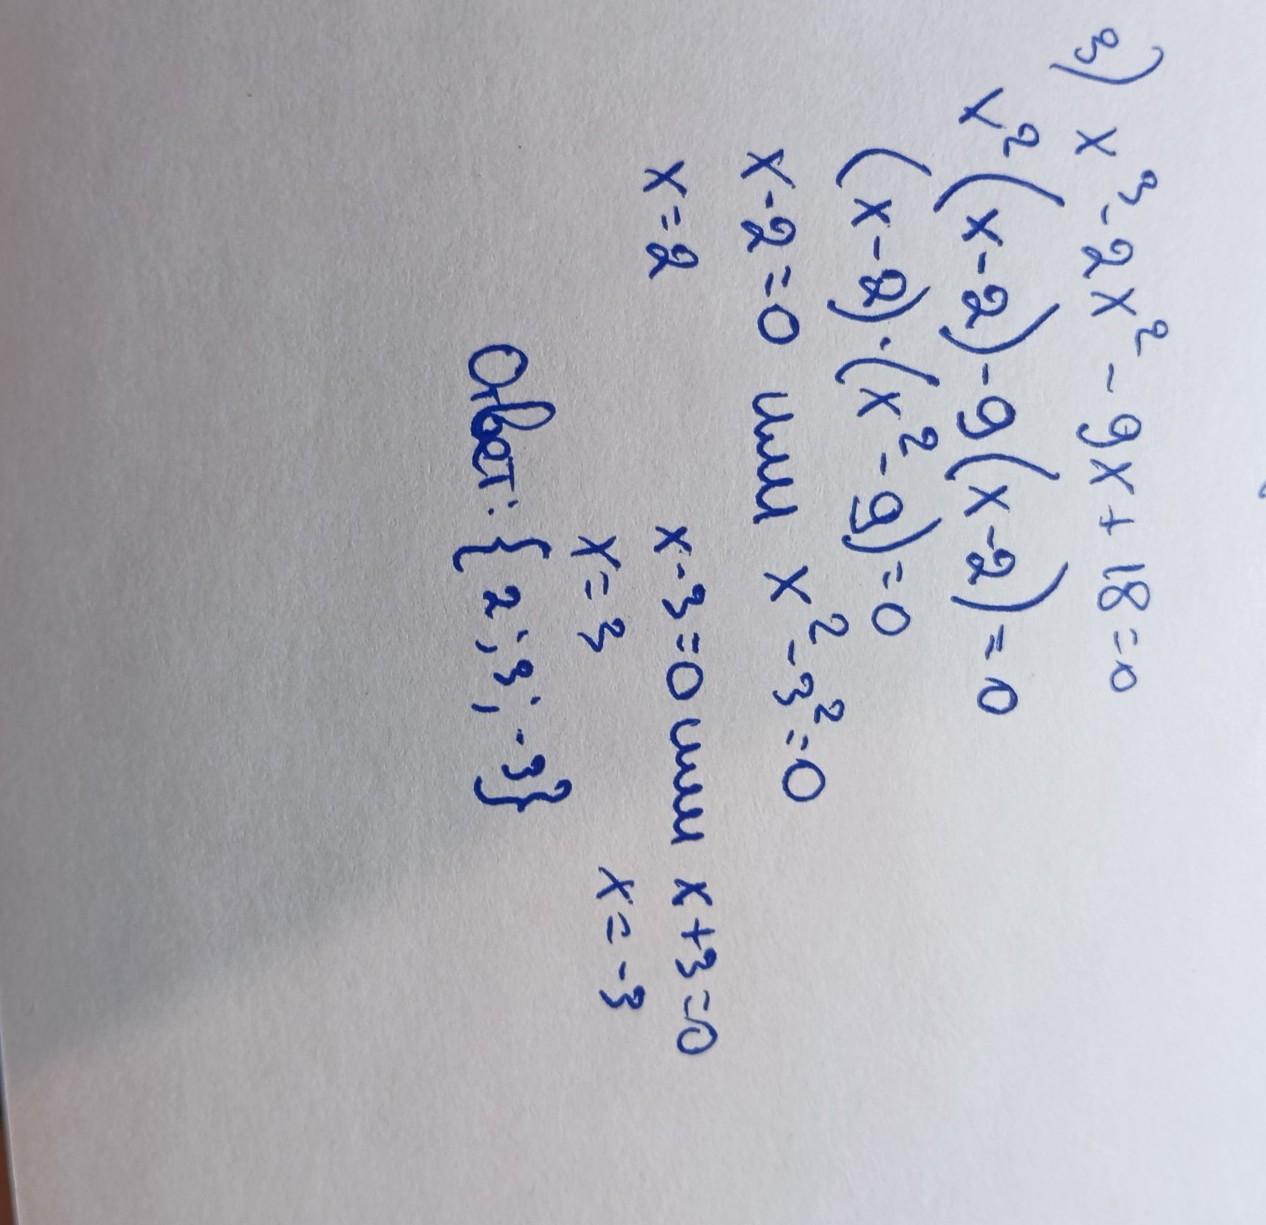 3) x³-2x²-9x+18=0
x²(x-2)-9(x-2)=0
(x-2)·(x²-9)=0
x-2=0 или x²-3²=0
x=2 x-3=0 или x+3=0
x=3 x=-3
Ответ: {2;3;-3}